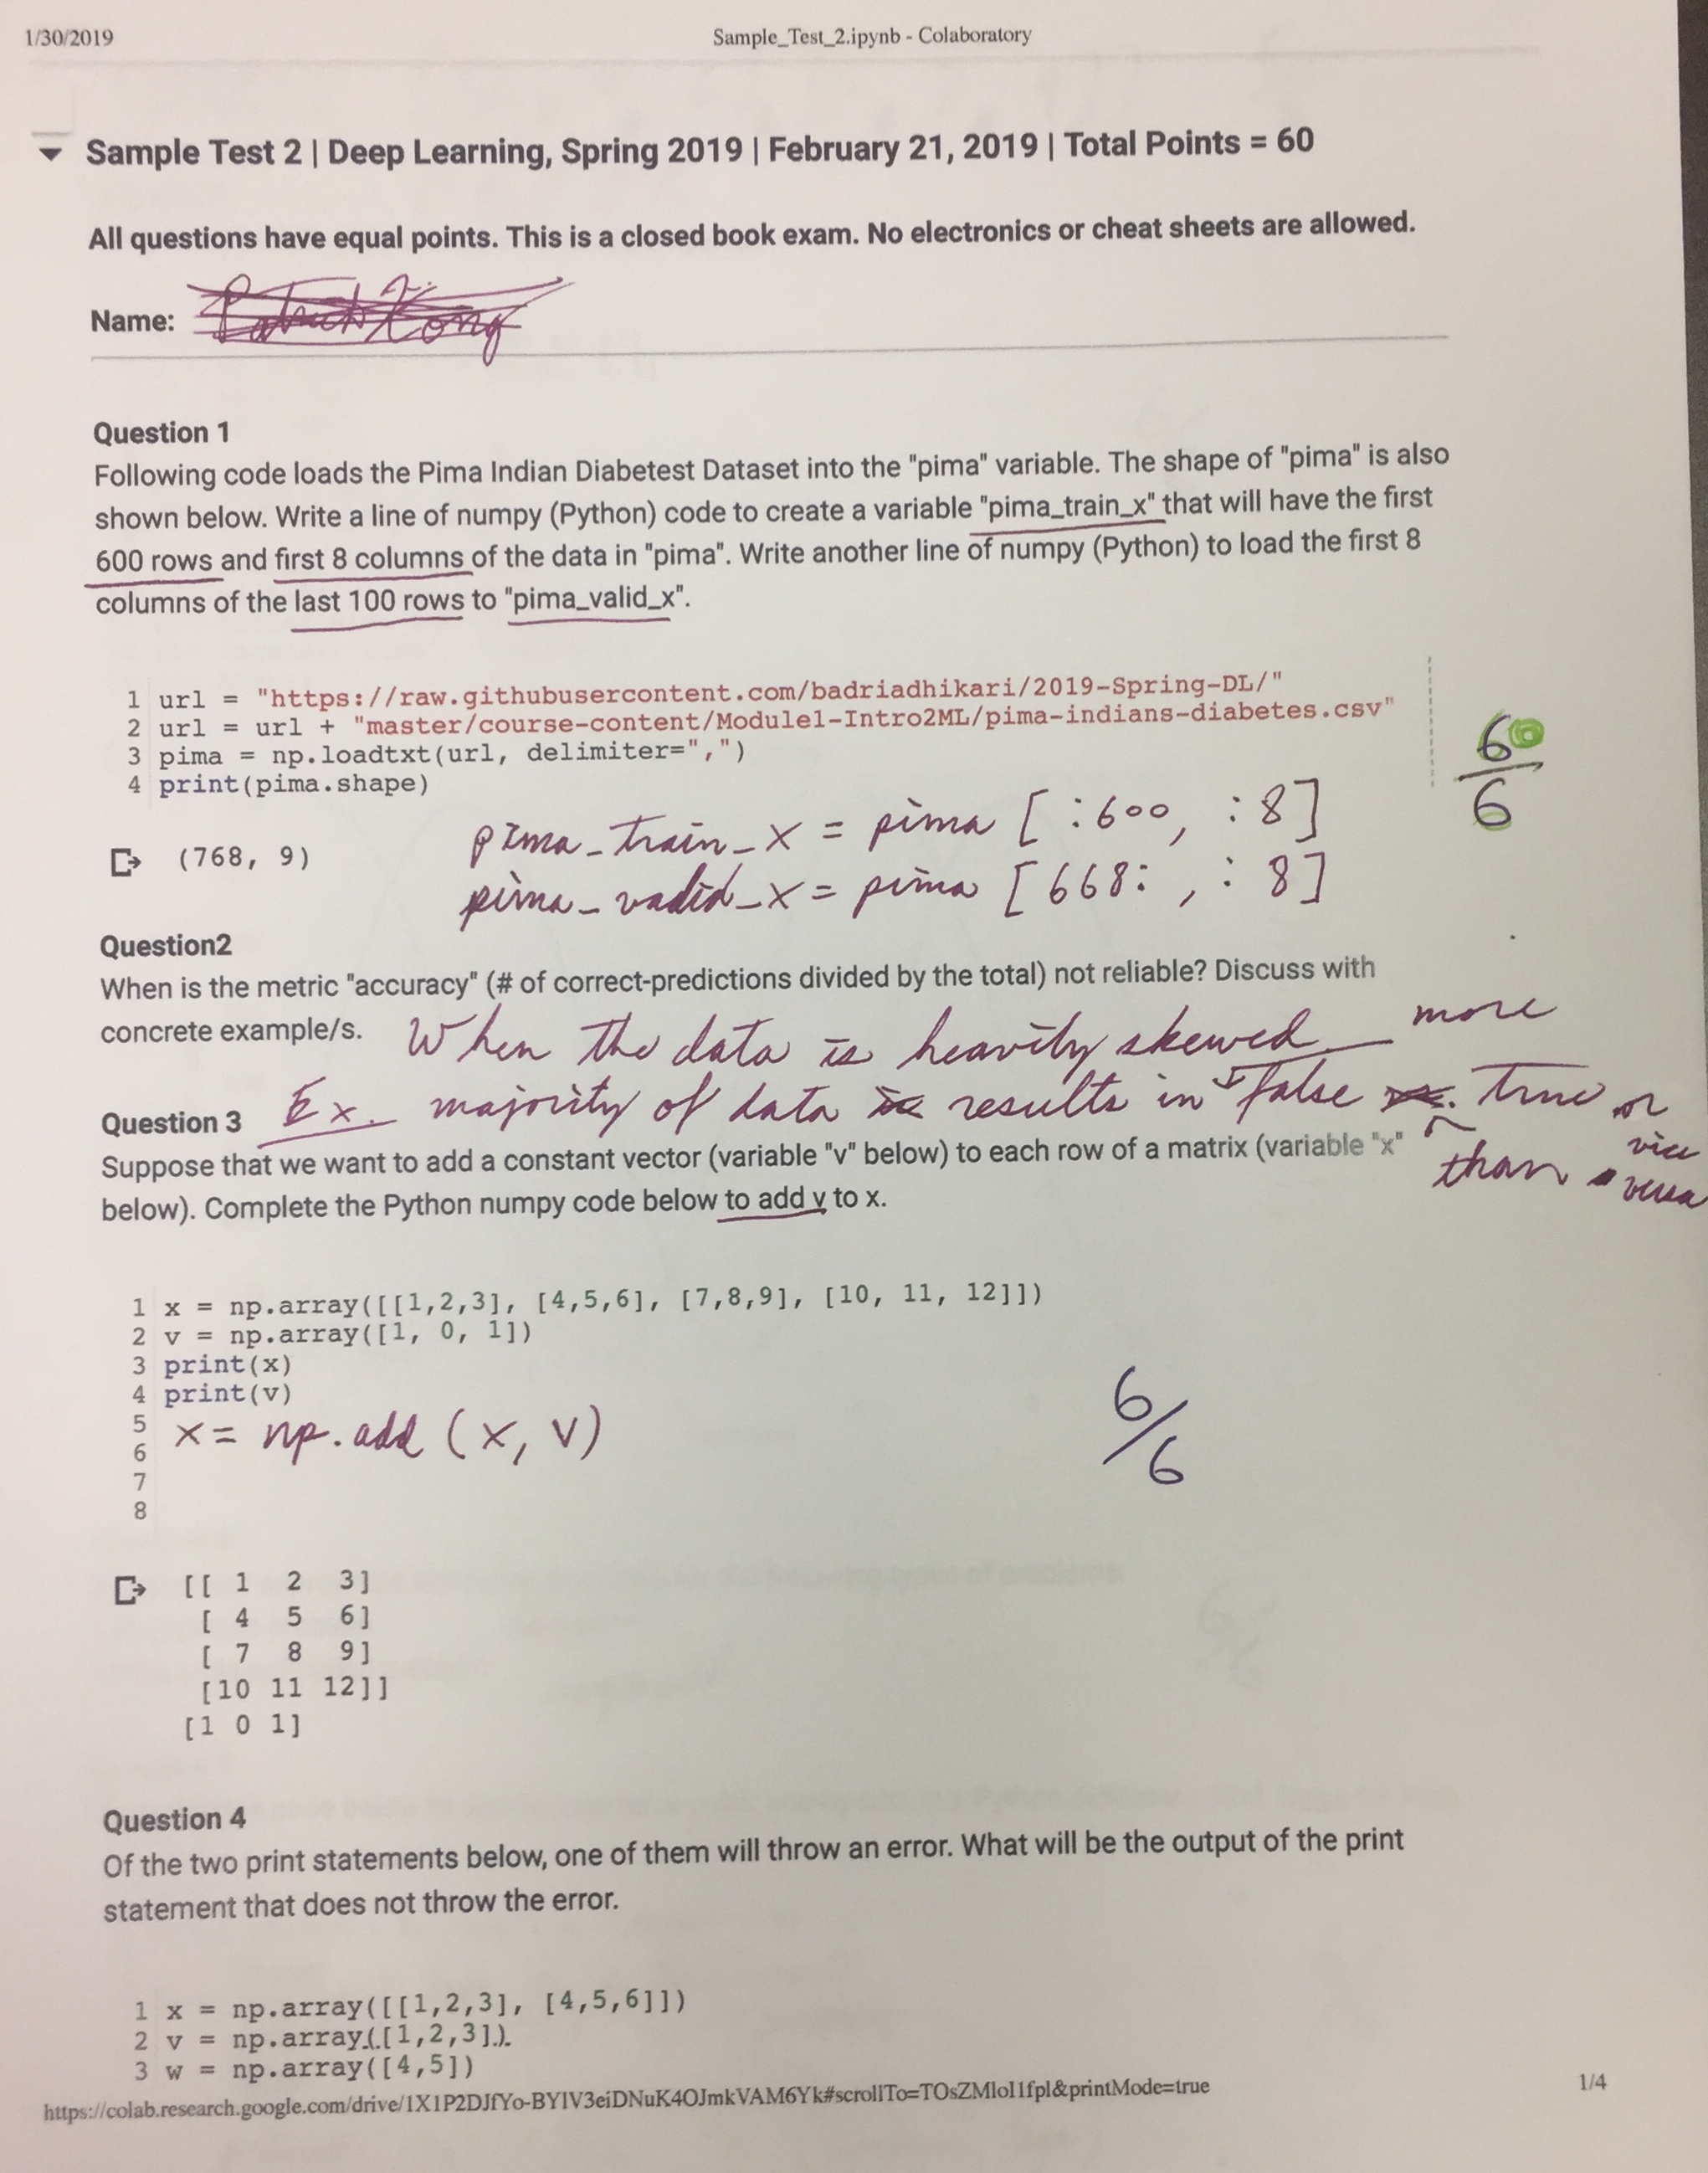 1/30/2019 Sample_Test_2.ipynb - Colaboratory
Sample Test 2 | Deep Learning, Spring 2019 | February 21, 2019 | Total Points = 60
All questions have equal points. This is a closed book exam. No electronics or cheat sheets are allowed.
Name:
Question 1
Following code loads the Pima Indian Diabetest Dataset into the "pima" variable. The shape of "pima" is also
shown below. Write a line of numpy (Python) code to create a variable "pima_train_x" that will have the first
600 rows and first 8 columns of the data in "pima". Write another line of numpy (Python) to load the first 8
columns of the last 100 rows to "pima_valid_x".
1 url = "https://raw.githubusercontent.com/badriadhikari/2019-Spring-DL/"
2 url = url + "master/course-content/Module1-Intro2ML/pima-indians-diabetes.csv"
3 pima = np.loadtxt(url, delimiter=",")
4 print(pima.shape)
6
6
pima_train_x = pima [ :600, :8]
(768, 9)
pima_valid_x = pima [668: , : 8]
Question2
When is the metric "accuracy" (# of correct-predictions divided by the total) not reliable? Discuss with
concrete example/s. When the data is heavily skewed more
Ex. majority of data results in false true or
than vice
versa
Question 3
Suppose that we want to add a constant vector (variable "v" below) to each row of a matrix (variable "x"
below). Complete the Python numpy code below to add v to x.
1 x = np.array([[1,2,3], [4,5,6], [7,8,9], [10, 11, 12]])
2 v = np.array([1, 0, 1])
3 print(x)
4 print(v)
5 x = np.add (x, v)
6
7
8
6/6
[[ 1 2 3]
[ 4 5 6]
[ 7 8 9]
[10 11 12]]
[1 0 1]
Question 4
Of the two print statements below, one of them will throw an error. What will be the output of the print
statement that does not throw the error.
1 x = np.array([[1,2,3], [4,5,6]])
2 v = np.array([1,2,3])
3 w = np.array([4,5])
https://colab.research.google.com/drive/1X1P2DJfYo-BYlV3eiDNuK4OJmkVAM6Yk#scrollTo=TOsZMloI1fpl&printMode=true 1/4